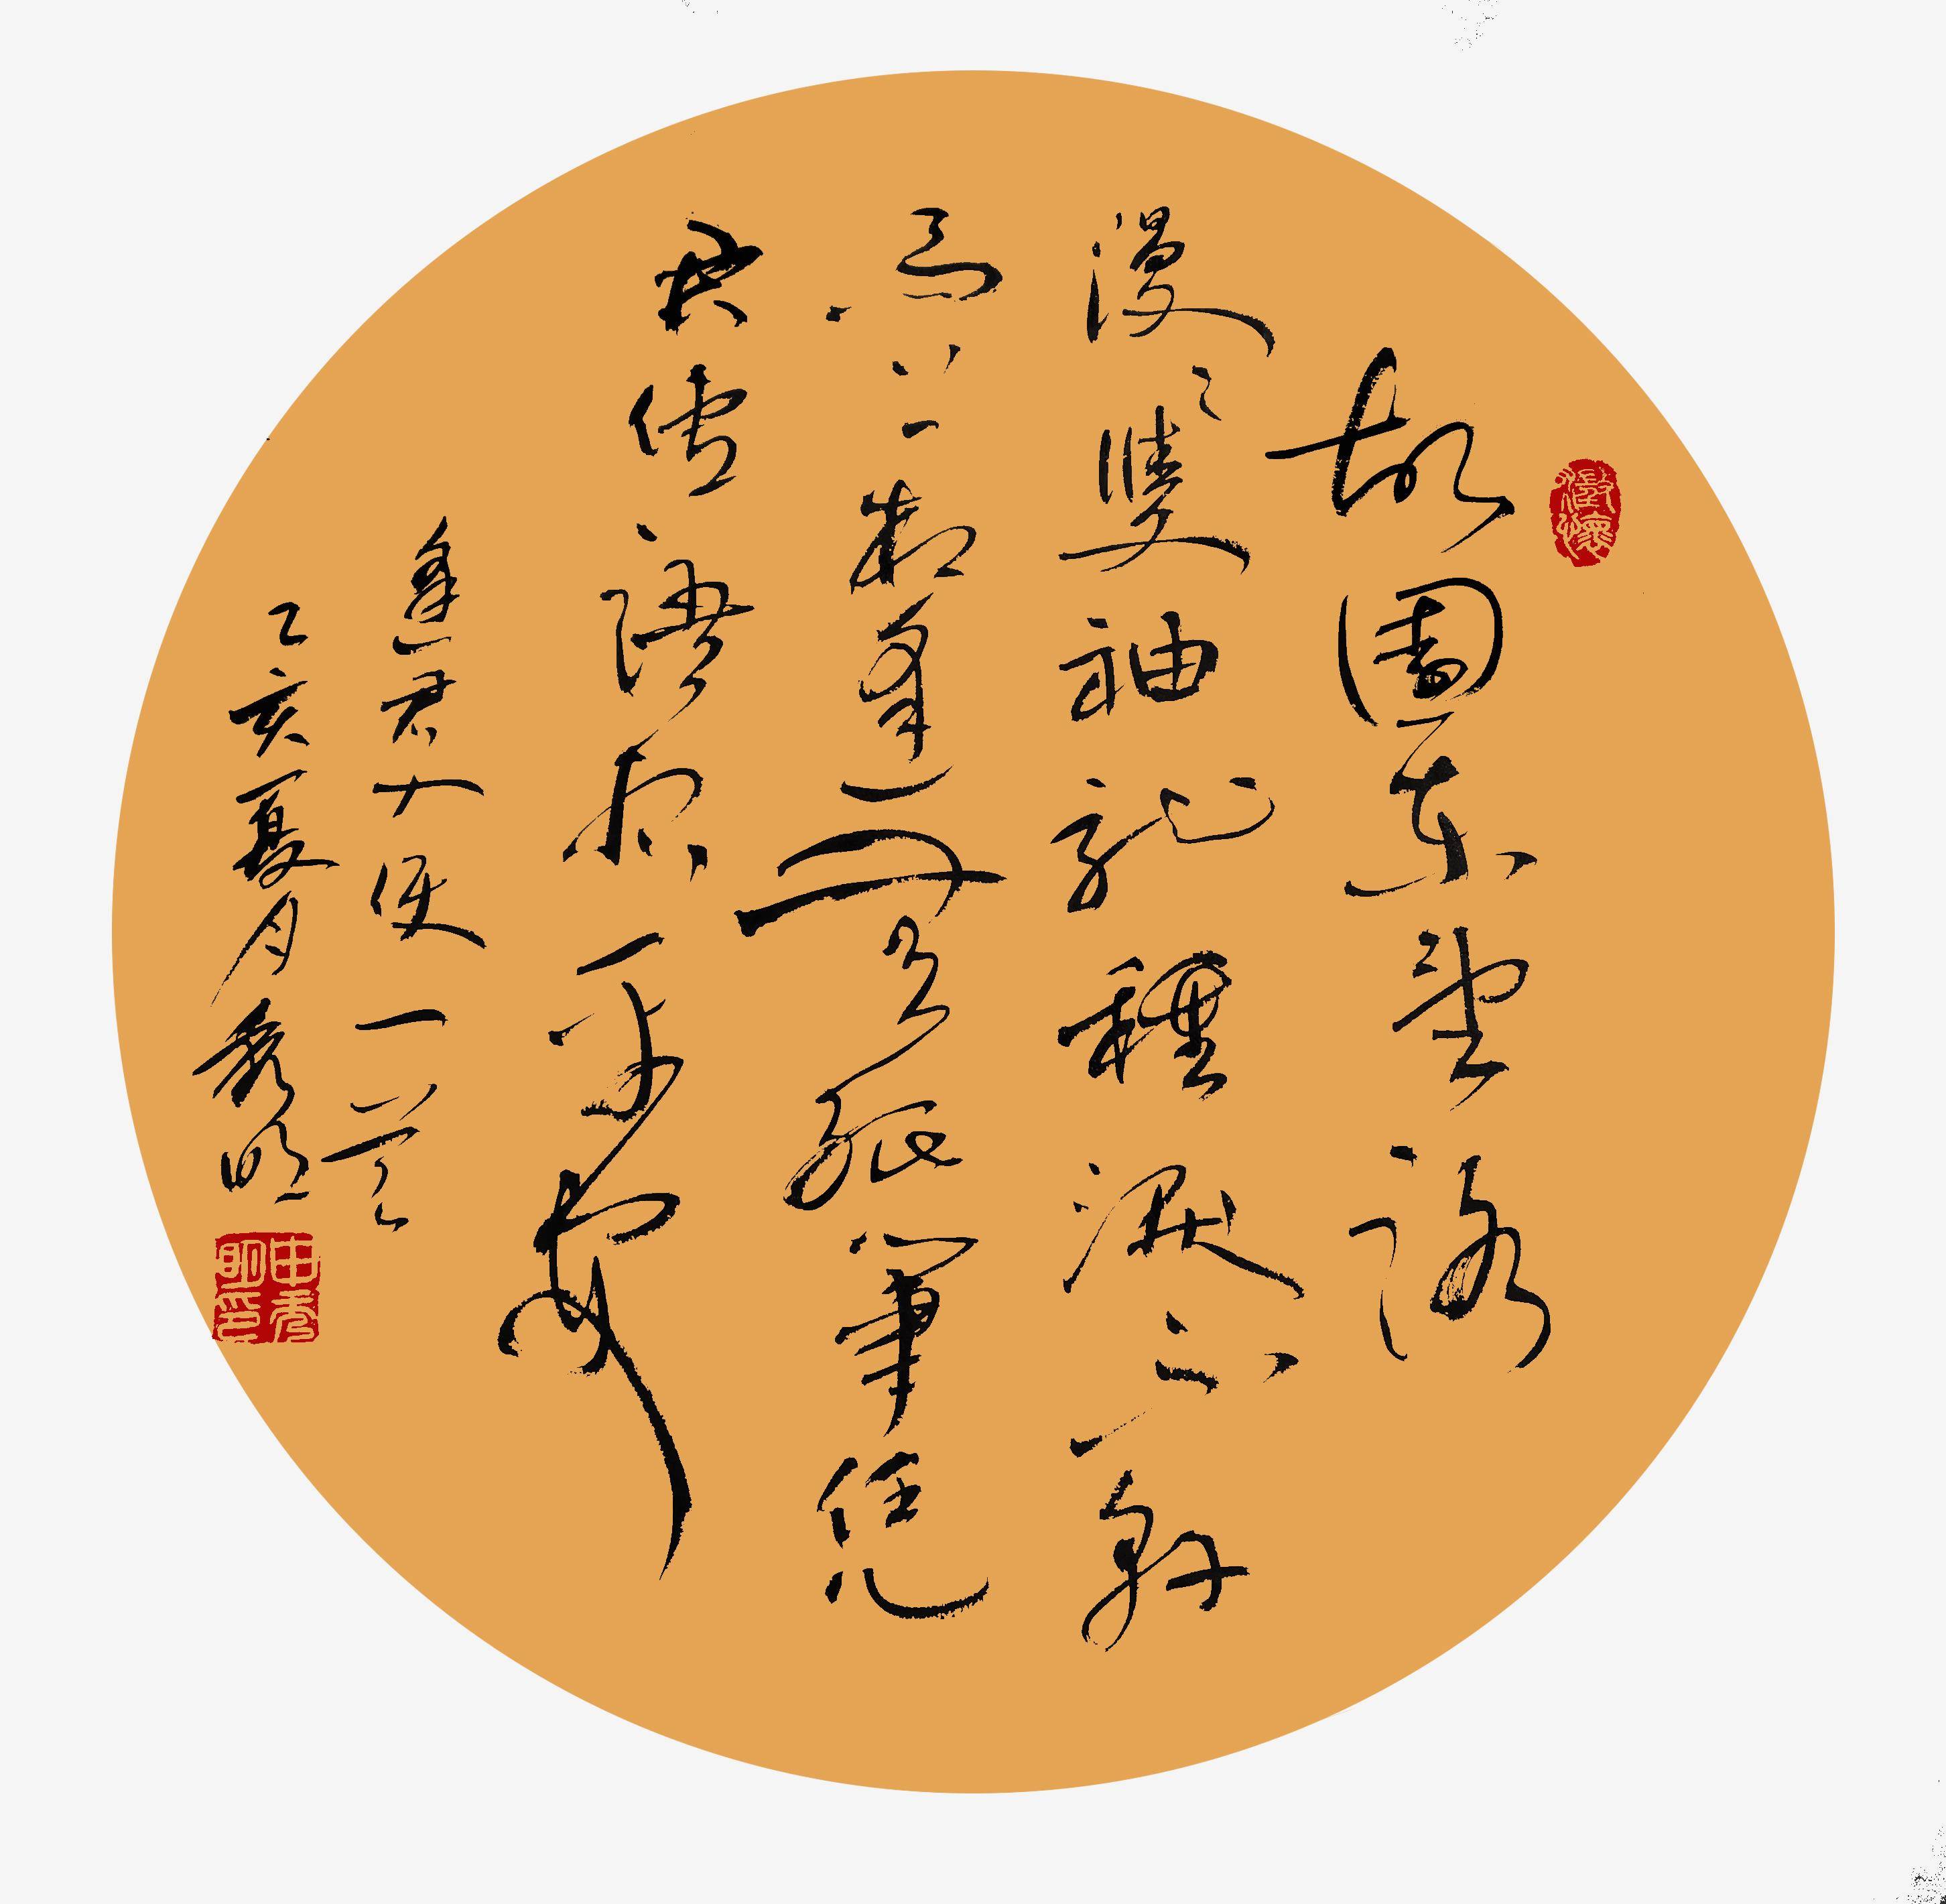 故園東望路
漫々雙袖龍鍾淚不乾
馬上相逢無紙筆憑
君傳語報平安
逢入使一首
乙亥夏月秀明
申秀明印